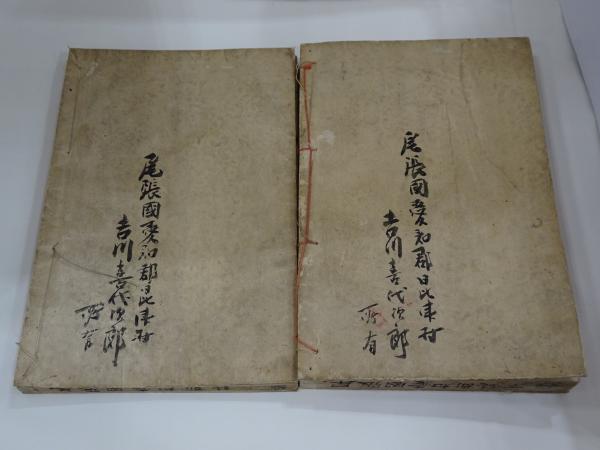 尾張國愛知郡日比津村
吉川喜代次郎
所有
尾張國愛知郡日比津村
吉川喜代次郎
所有